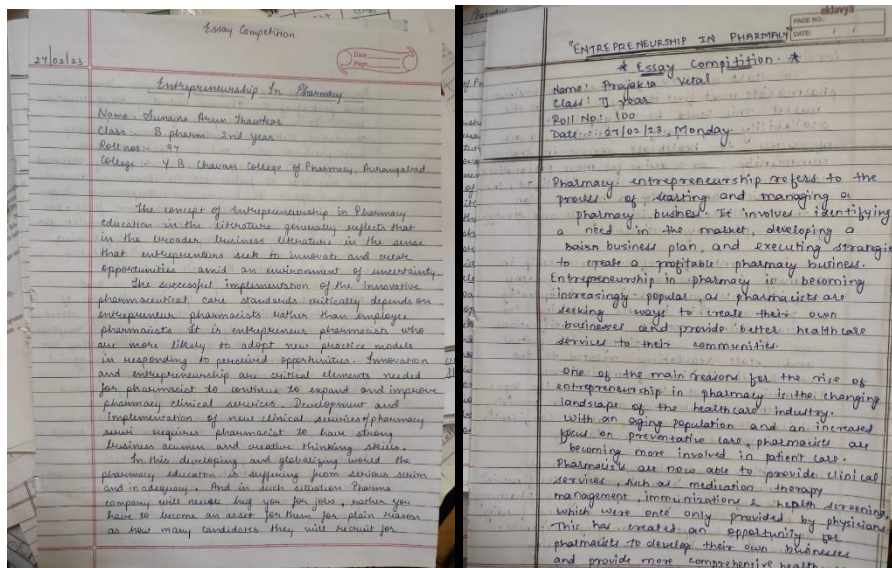 Essay Competition
27/02/23
Date
Page
Entrepreneurship In Pharmacy
Name - Sumaina Arun Thawkar
Class - B pharm 2nd year
Roll no. - 97
College - Y. B. Chavan College of Pharmacy, Aurangabad
The concept of Entrepreneurship in Pharmacy
education in the literature generally reflects that
in the broader business literature in the sense
that entrepreneurs seek to innovate and create
opportunities amid an environment of uncertainty.
The successful implementation of the innovative
pharmaceutical care standards critically depends on
entrepreneur pharmacists rather than employee
pharmacists. It is entrepreneur pharmacists who
are more likely to adopt new practice models
in responding to perceived opportunities. Innovation
and entrepreneurship are critical elements needed
for pharmacist to continue to expand and improve
pharmacy clinical services. Development and
implementation of new clinical services/pharmacy
requires pharmacist to have strong
business acumen and creative thinking skills.
In this developing and globalizing world the
pharmacy education is suffering from serious
and inadequacy. And in such situation Pharma
company will never hug you for jobs, rather you
have to become an asset for them for plain reason
as how many candidates they will recruit for
eklavya
PAGE NO.:
DATE: / /
"ENTREPRENEURSHIP IN PHARMACY"
* Essay Compitition. *
Name: Prajakta Vetal
Class: II year
Roll No: 100
Date: 27/02/23, Monday.
Pharmacy entrepreneurship refers to the
process of starting and managing a
pharmacy business. It involves identifying
a need in the market, developing a
business plan, and executing strategie
to create a profitable pharmacy business.
Entrepreneurship in pharmacy is becoming
increasingly popular, as pharmacists are
seeking ways to create their own
businesses and provide better health care
services to their communities.
One of the main reasons for the rise of
entrepreneurship in pharmacy is the changing
landscape of the healthcare industry.
With an aging population and an increased
focus on preventative care, pharmacists are
becoming more involved in patient care.
Pharmacists are now able to provide clinical
services, such as medication therapy
management, immunizations & health screening,
which were once only provided by physicians.
This has created an opportunity for
pharmacists to develop their own businesses
and provide more comprehensive health